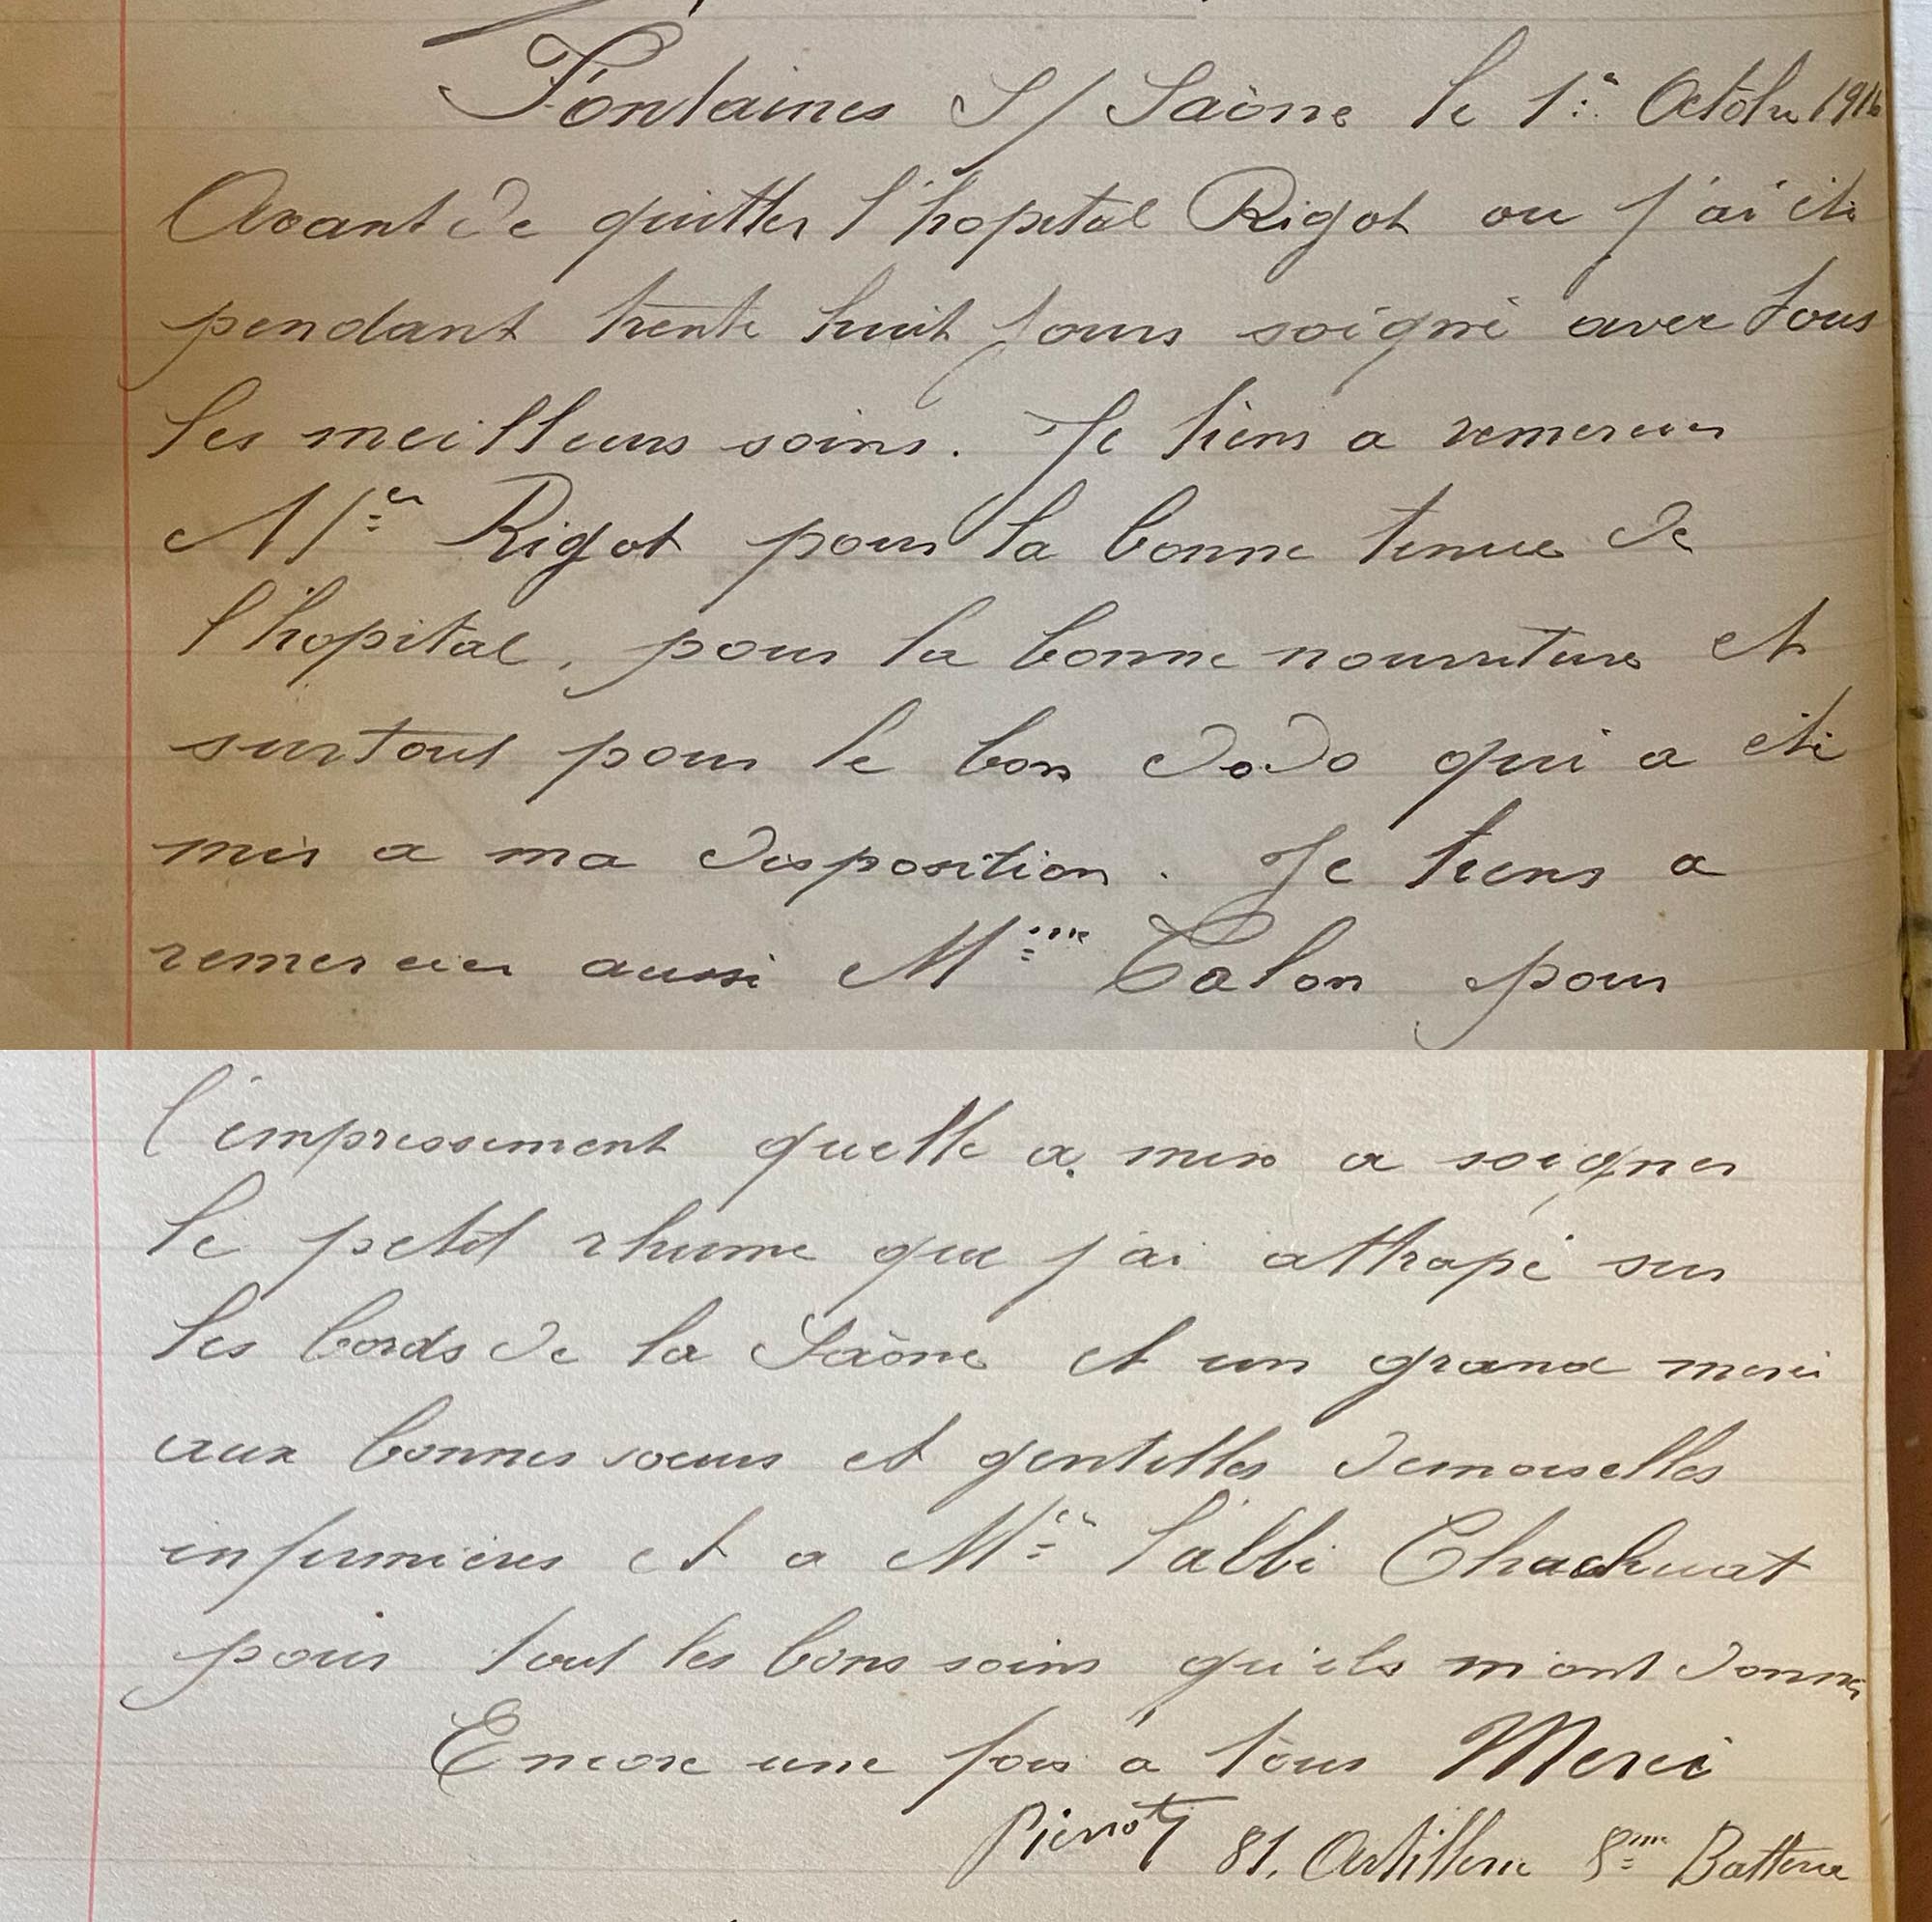 Fontaines S/ Saône le 1er Octobre 1916
Avant de quitter l'hopital Rigot ou j'ai été
pendant trente huit jours soigné avec tous
les meilleurs soins. Je tiens a remercier
Mer Rigot pour la bonne tenue de
l'hopital, pour la bonne nourriture et
surtout pour le bon dodo qui a été
mis a ma disposition. Je tiens a
remercier aussi Mme Calon pour
l'empressement quelle a mis a soigner
le petit rhume que j'ai attrapé sur
les bords de la Saône et un grand merci
aux bonnes soeurs et gentilles demoiselles
infirmières et a Mr l'abbé Chachuat
pour tout les bons soins qu'ils m'ont donné
Encore une fois à tous Merci
Pierrot 81. Artillerie 8me Batterie